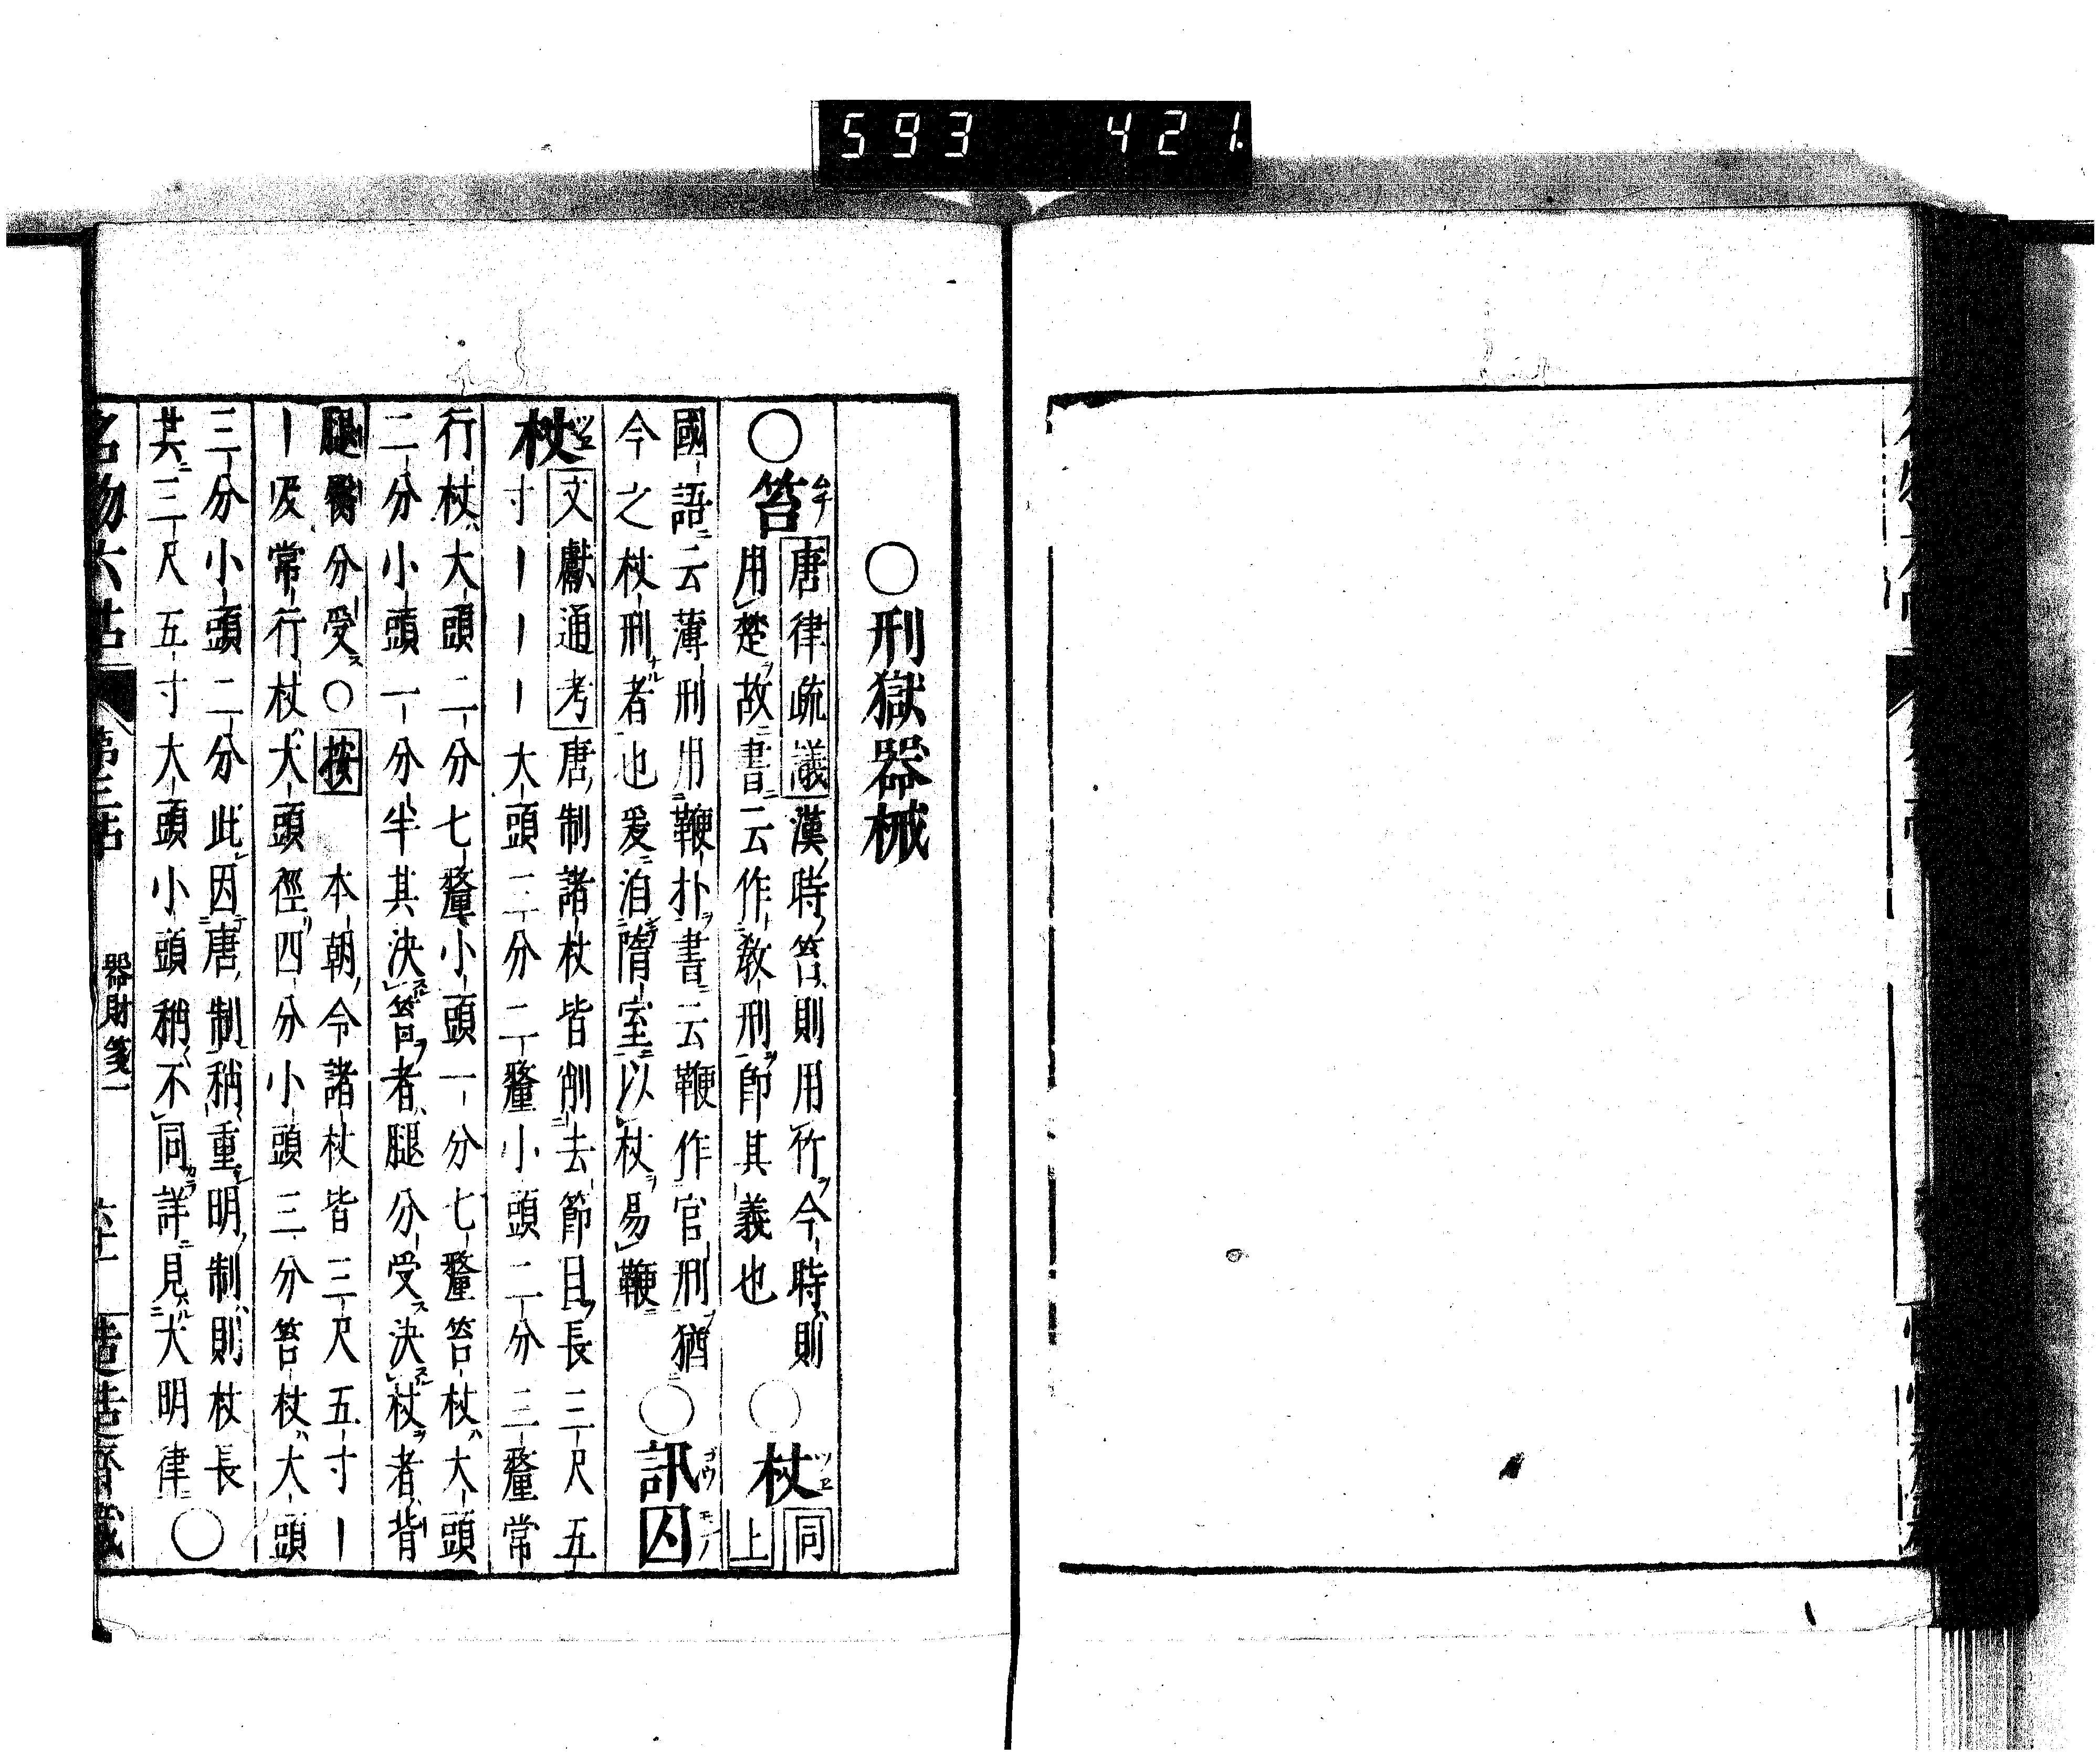 593 421.
○刑獄器械
○笞ムチ
唐律疏議漢時笞則用竹今時則
用楚故書云作教刑即其義也
○杖ツヱ同上
國語云薄刑用鞭扑書云鞭作官刑猶
今之杖刑者也爰洎隋室以杖易鞭
○訊囚
杖ツヱ
文獻通考唐制諸杖皆削去節目長三尺五
寸ーーー大頭三分二釐小頭二分三釐常
行杖大頭二分七釐小頭一分七釐笞杖大頭
二分小頭一分半其決笞者腿分受決杖者背
腿臀分受○按本朝令諸杖皆三尺五寸ー
ー及常行杖大頭徑四分小頭三分笞杖大頭
三分小頭二分此因唐制稍重明制則杖長
共三尺五寸大頭小頭稍不同詳見大明律○
名物六帖 第三帖 器財箋一